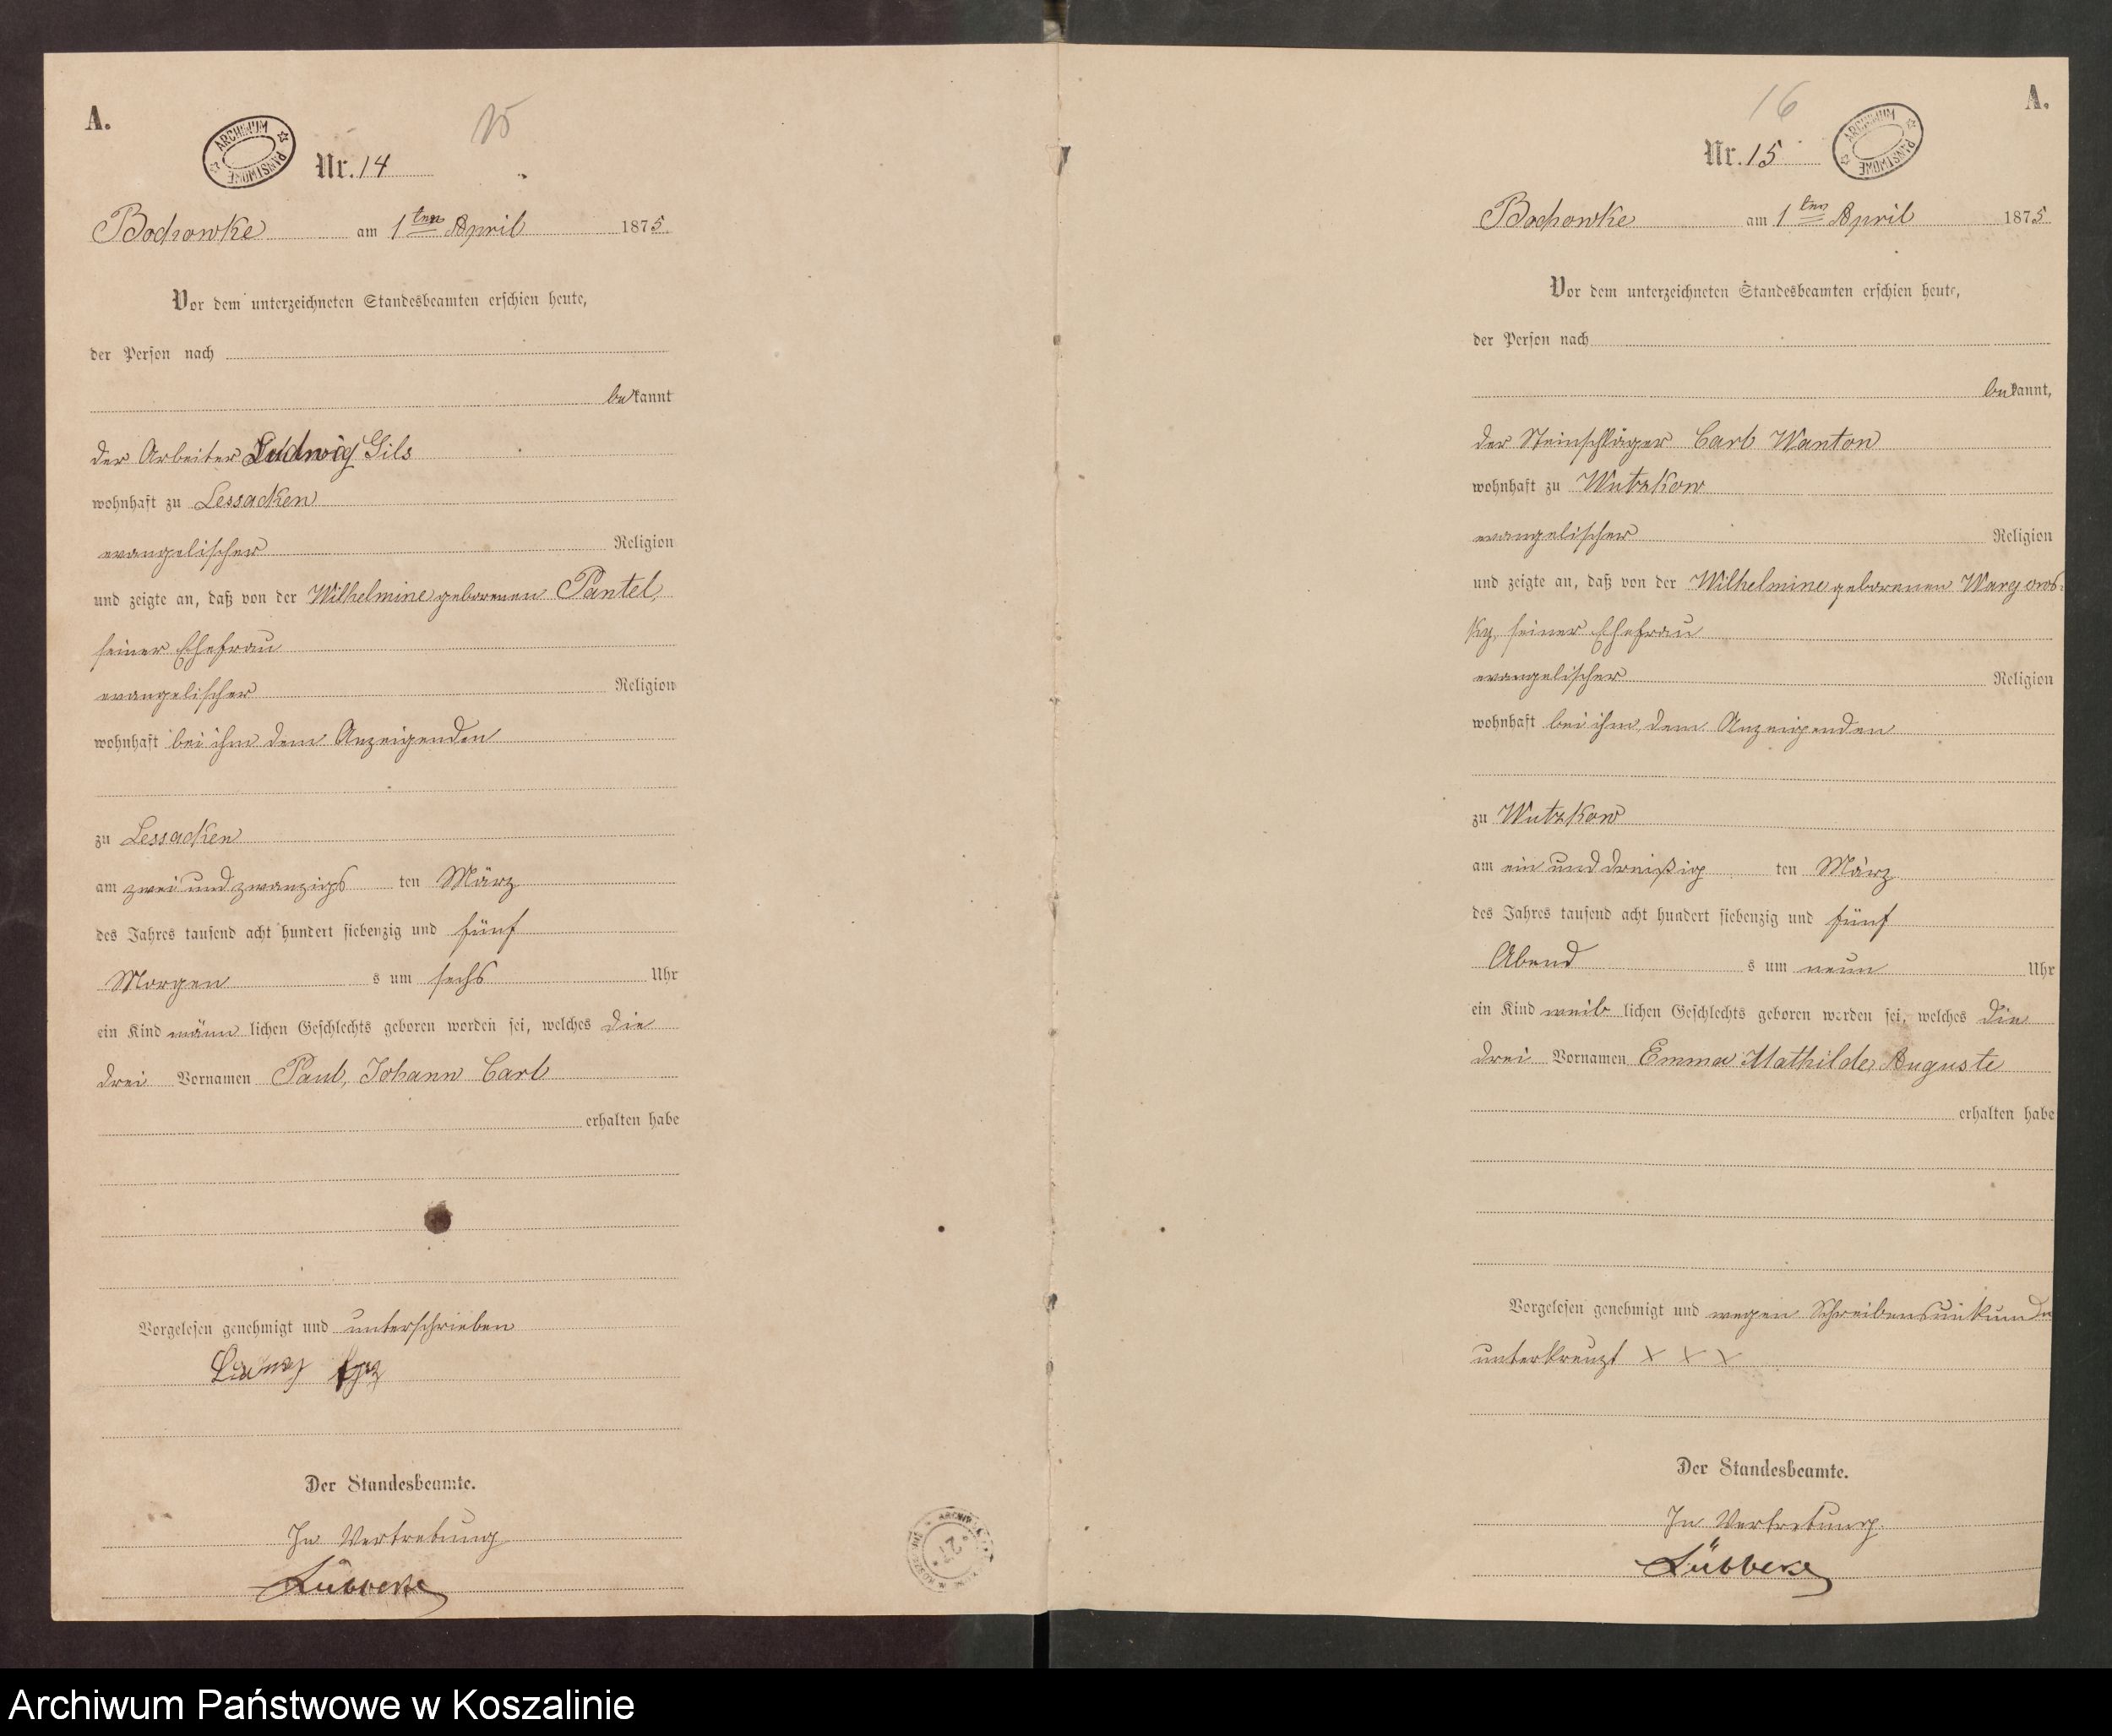 A.
ARCHIWUM PAŃSTWOWE
15
Nr. 14
Bochowke am 1ten April 1875.
Vor dem unterzeichneten Standesbeamten erschien heute,
der Person nach
bekannt
der Arbeiter Ludwig Gils
wohnhaft zu Lessacken
evangelischer Religion
und zeigte an, daß von der Wilhelmine geborenen Pantel,
seiner Ehefrau
evangelischer Religion
wohnhaft bei ihm dem Anzeigenden
zu Lessacken
am zwei und zwanzigs ten März
des Jahres tausend acht hundert siebenzig und fünf
Morgen s um sechs Uhr
ein Kind männ lichen Geschlechts geboren worden sei, welches die
drei Vornamen Paul, Johann Carl
erhalten habe
Vorgelesen genehmigt und unterschrieben
Der Standesbeamte.
In Vertretung
Lübbecke
A.
16
ARCHIWUM PAŃSTWOWE
Nr. 15
Bochowke am 1ten April 1875
Vor dem unterzeichneten Standesbeamten erschien heute,
der Person nach
bekannt,
der Steinschläger Carl Wanton
wohnhaft zu Wutzkow
evangelischer Religion
und zeigte an, daß von der Wilhelmine geborenen Wargows-
ky, seiner Ehefrau
evangelischer Religion
wohnhaft bei ihm, dem Anzeigenden
zu Wutzkow
am ein und dreißig ten März
des Jahres tausend acht hundert siebenzig und fünf
Abend s um neun Uhr
ein Kind weib lichen Geschlechts geboren worden sei, welches die
drei Vornamen Emma Mathilde Auguste
erhalten habe
Vorgelesen genehmigt und wegen Schreibensunkunde
unterkreuzt X X X
Der Standesbeamte.
In Vertretung.
Lübbecke
Archiwum Państwowe w Koszalinie